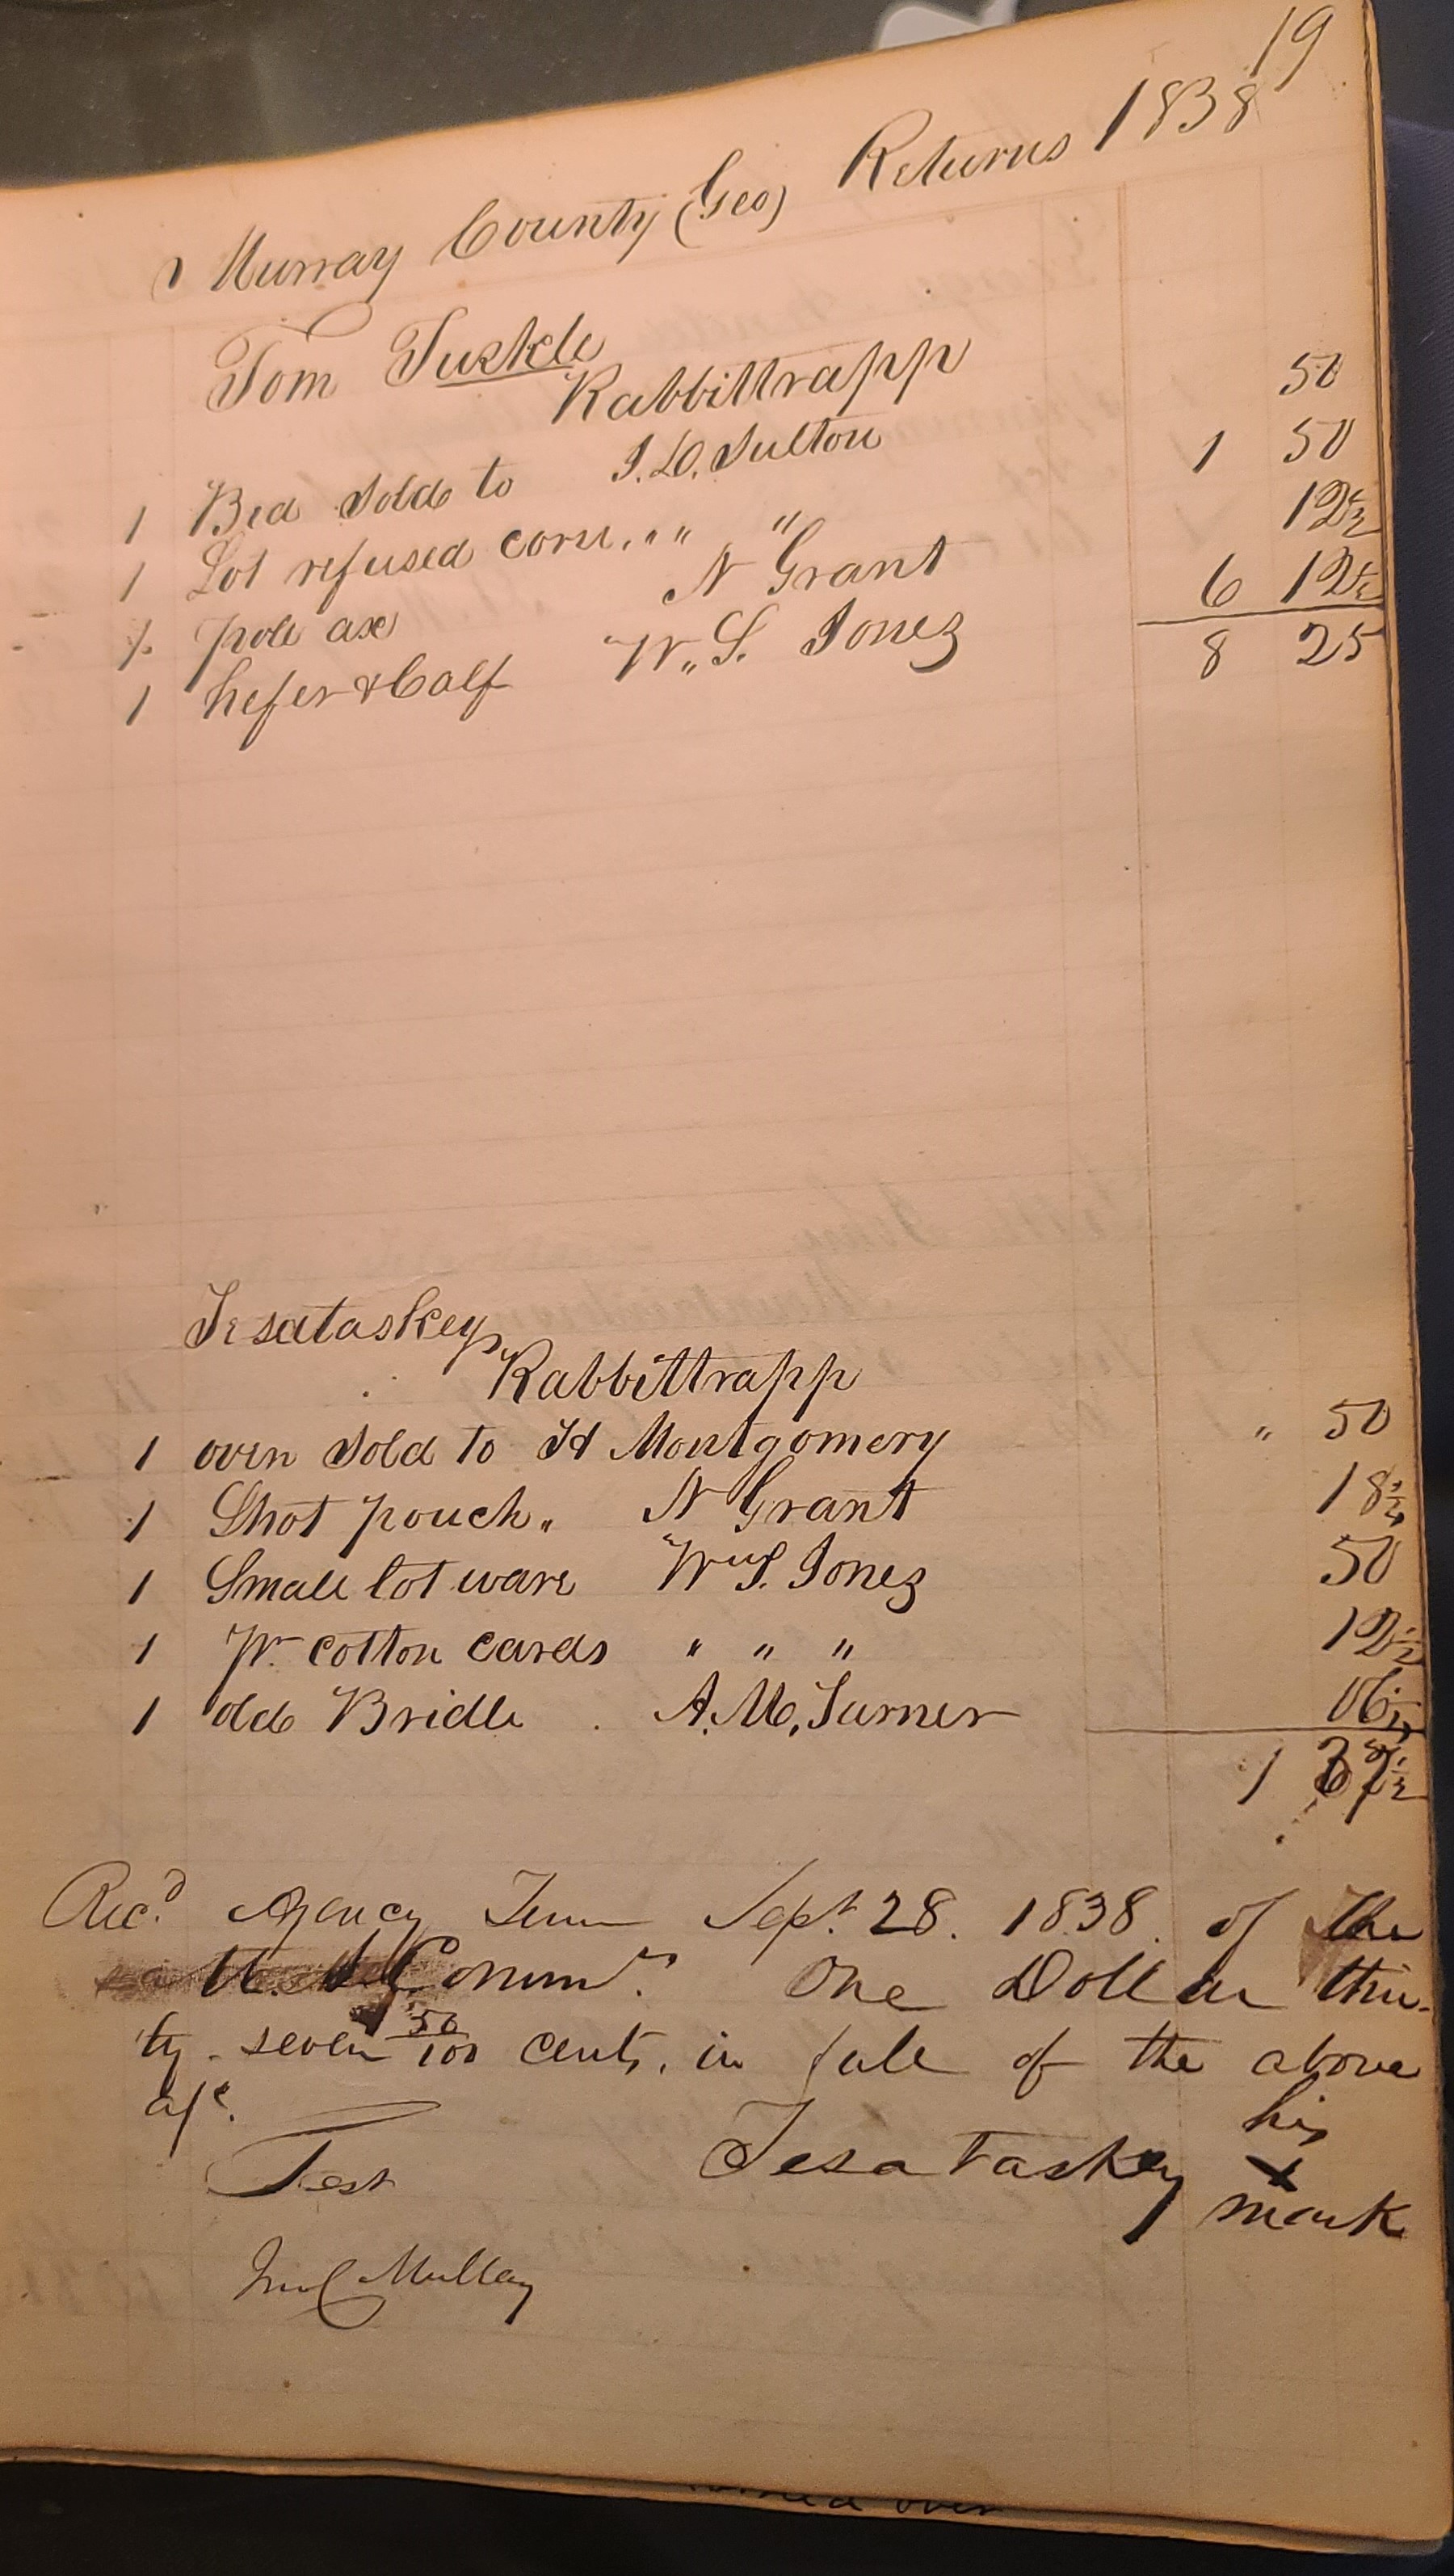 19
Murray County (Geo) Returns 1838
Tom Tuckle
Rabbittrapp
1 Bed Sold to J. D. Fulton 50
1 Lot refused corn " " " 1 50
1 pole axe N Grant 12½
1 hefer & Calf W. S. Jones 6 12½
8 25
Tesataskey
Rabbittrapp
1 oven Sold to H Montgomery " 50
1 Shot pouch " N Grant 18¾
1 Small lot ware Wm S. Jones 50
1 Pr cotton cards " " " 12½
1 old Bridle A. M. Turner 06¼
1 37½
Recd Agency Tenn Sept 28. 1838. of the
U. S. Commrs. One Dollar thir-
ty-seven 50/100 cents, in full of the above
a/c.
his
Test Tesataskey x
mark
Jno C Mullay
over